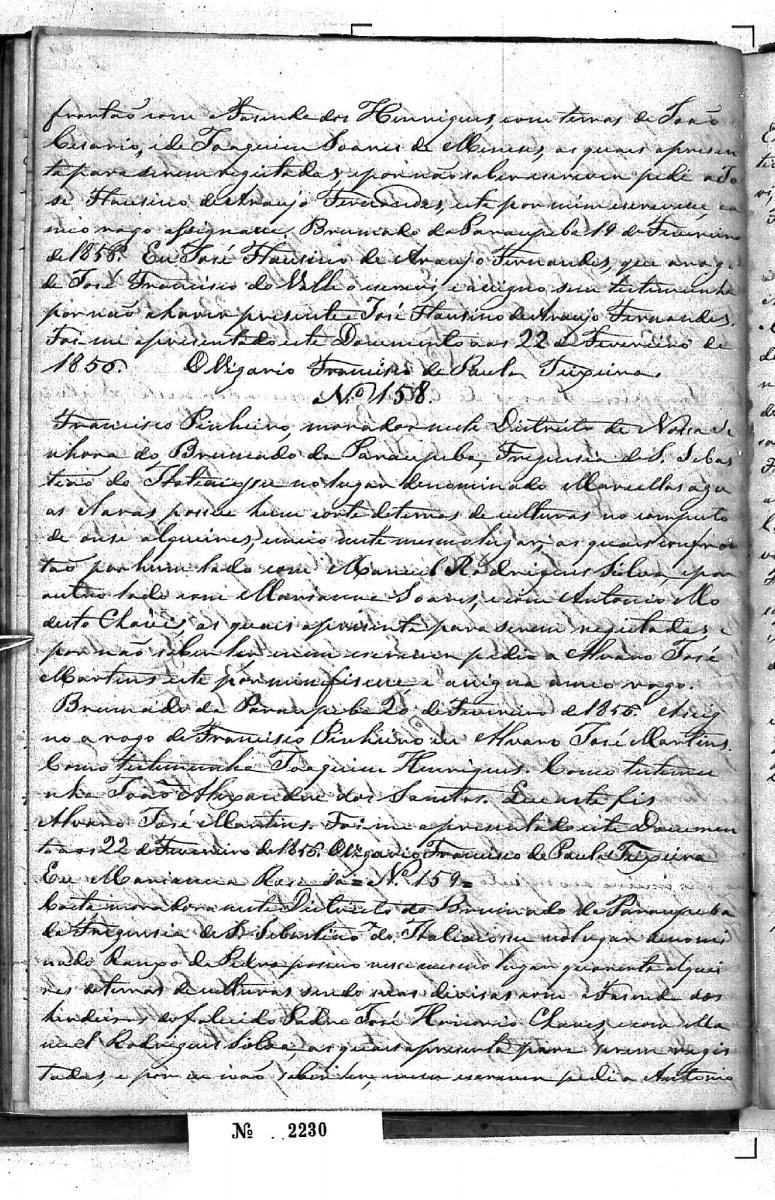 frontão com a Fasenda dos Henriques, com terras de João
Cesario, e de Joaquim Soares de Meneses, as quais apresen
ta para serem registadas, e por não saber escrever pedi a Jo
sé Flausino de Araujo Fernandes, este por mim escrevece, e a
meo rogo assignace, Brumado do Paraupeba 19 de Fevereiro
de 1856. Eu José Flausino de Araujo Fernandes, que a rogo
de José Francisco do Valle o escrevi e asigno, sem testemunha
por não a haver presente José Flausino de Araujo Fernandes.
Foi me apresentado este Documento aos 22 de Fevereiro de
1856. O Vigario Francisco de Paula Teixeira.
No 158.
Francisco Pinheiro, morador neste Districto de Nossa Se
nhora do Brumado do Paraupeba, Freguesia de S. Sebas
tião do Itatiaiossu no lugar denominado Marcellos agu
as claras, possue hum corte de terras de culturas no computo
de onse alqueires, unico neste mesmo lugar, as quais confron
tão por hum lado com Manoel Rodrigues Silva, e por
outro lado com Marianna Soares, e com Antonio Mo
desto Chaves, as quais apresenta para serem registadas e
por não saber ler nem escrever pedio a Alvaro José
Martins este por mim fisece e asigna a meo rogo.
Brumado do Paraupeba 20 de Fevereiro de 1856. Asig
no a rogo de Francisco Pinheiro eu Alvaro José Martins.
Como testemunha Joaquim Henriques. Como testemu
nha João Alexandre dos Santos. Eu este fis
Alvaro José Martins. Foi me apresentado este Documen
to aos 22 de Fevereiro de 1856. O Vigario Francisco de Paula Teixeira
Eu Marianna Rosa da = No. 159 =
Costa moradora neste Districto do Brumado do Paraupeba
da Freguesia de S. Sebastião do Itatiaiossu no lugar denomi
nado Rancho da Pedra possuo nesse mesmo lugar quarenta alquei
res de terras de culturas sendo suas divisas com a Fasenda dos
herdeiros do falecido Padre José Honorio Chaves, e com Ma
noel Rodrigues Silva, as quais apresenta para serem regis
tadas, e por eu não saber ler, nem escrever pedi a Antonio
No 2230